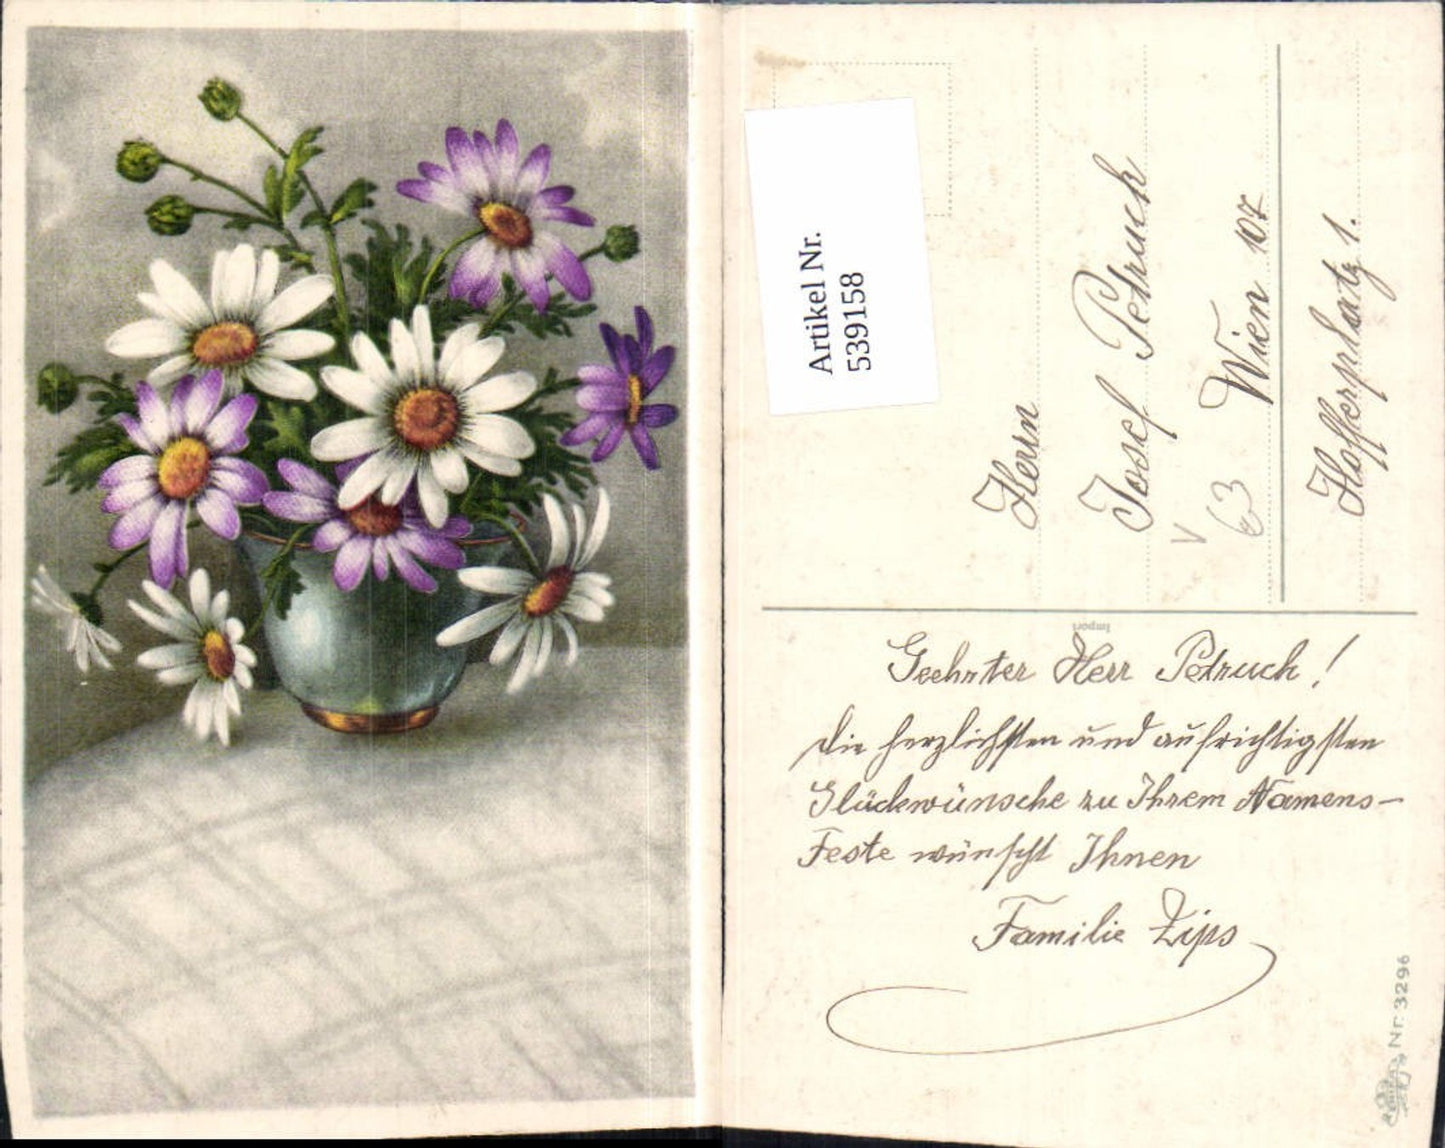 Artikel Nr.
539158
Herrn
Josef Petruch
Wien 107
Hofferplatz 1.
V
63
Import
Geehrter Herr Petruch!
Die herzlichsten und aufrichtigsten
Glückwünsche zu Ihrem Namens-
Feste wünscht Ihnen
Familie Zips
Nr. 3296